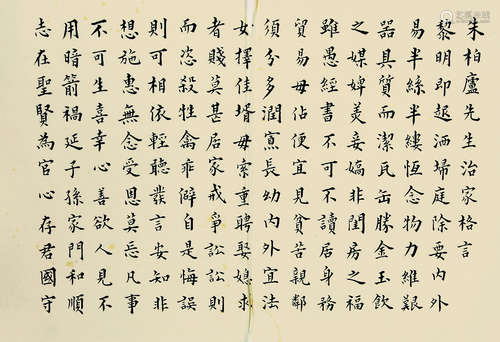 朱柏廬先生治家格言
黎明即起洒掃庭除要內外
易半絲半縷恆念物力維艱
器具質而潔瓦缶勝金玉飲
之媒婢美妾嬌非閨房之福
雖愚經書不可不讀居身務
貿易毋佔便宜見貧苦親鄰
須分多潤寡長幼內外宜法
女擇佳壻毋索重聘娶媳求
者賤莫甚居家戒爭訟訟則
而恣殺牲禽乖僻自是悔誤
則可相依輕聽發言安知非
想施惠無念受恩莫忘凡事
不可生喜幸心善欲人見不
用暗箭禍延子孫家門和順
志在聖賢為官心存君國守